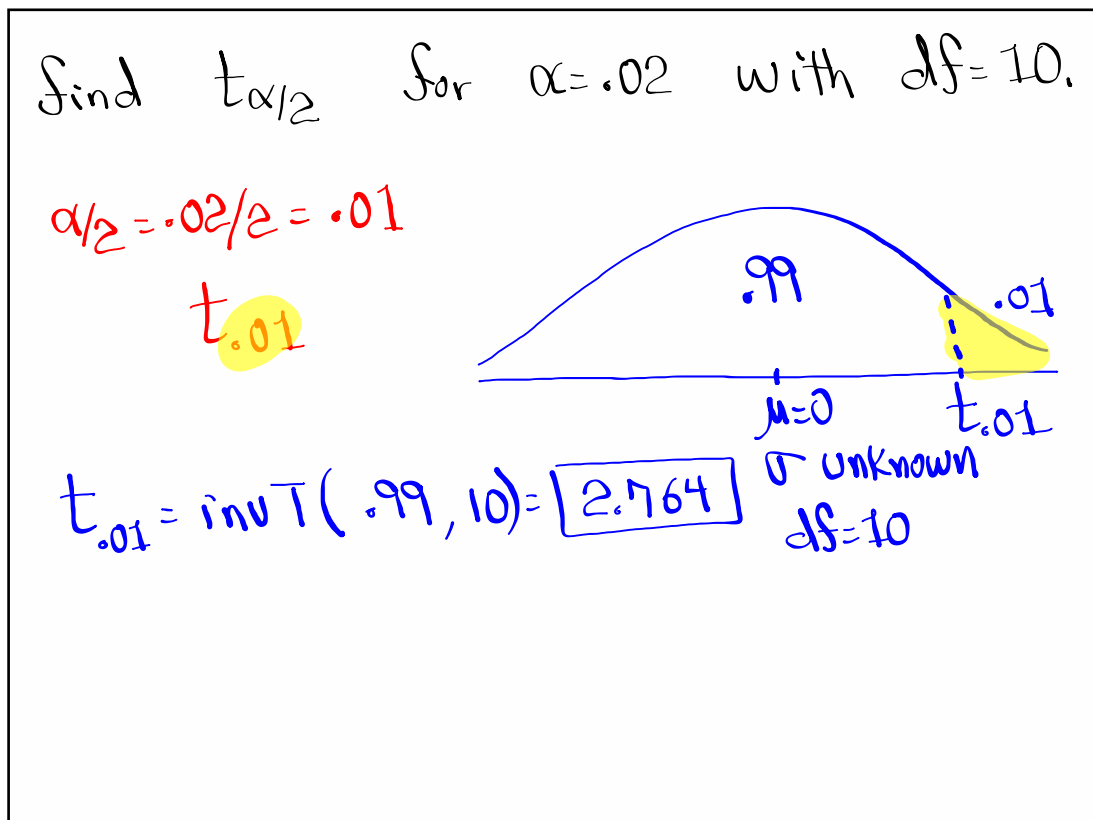 find tα/2 for α=.02 with df=10.
α/2 = .02/2 = .01
t.01
.99
.01
μ=0
t.01
σ unknown
df=10
t.01 = invT( .99, 10)= 2.764